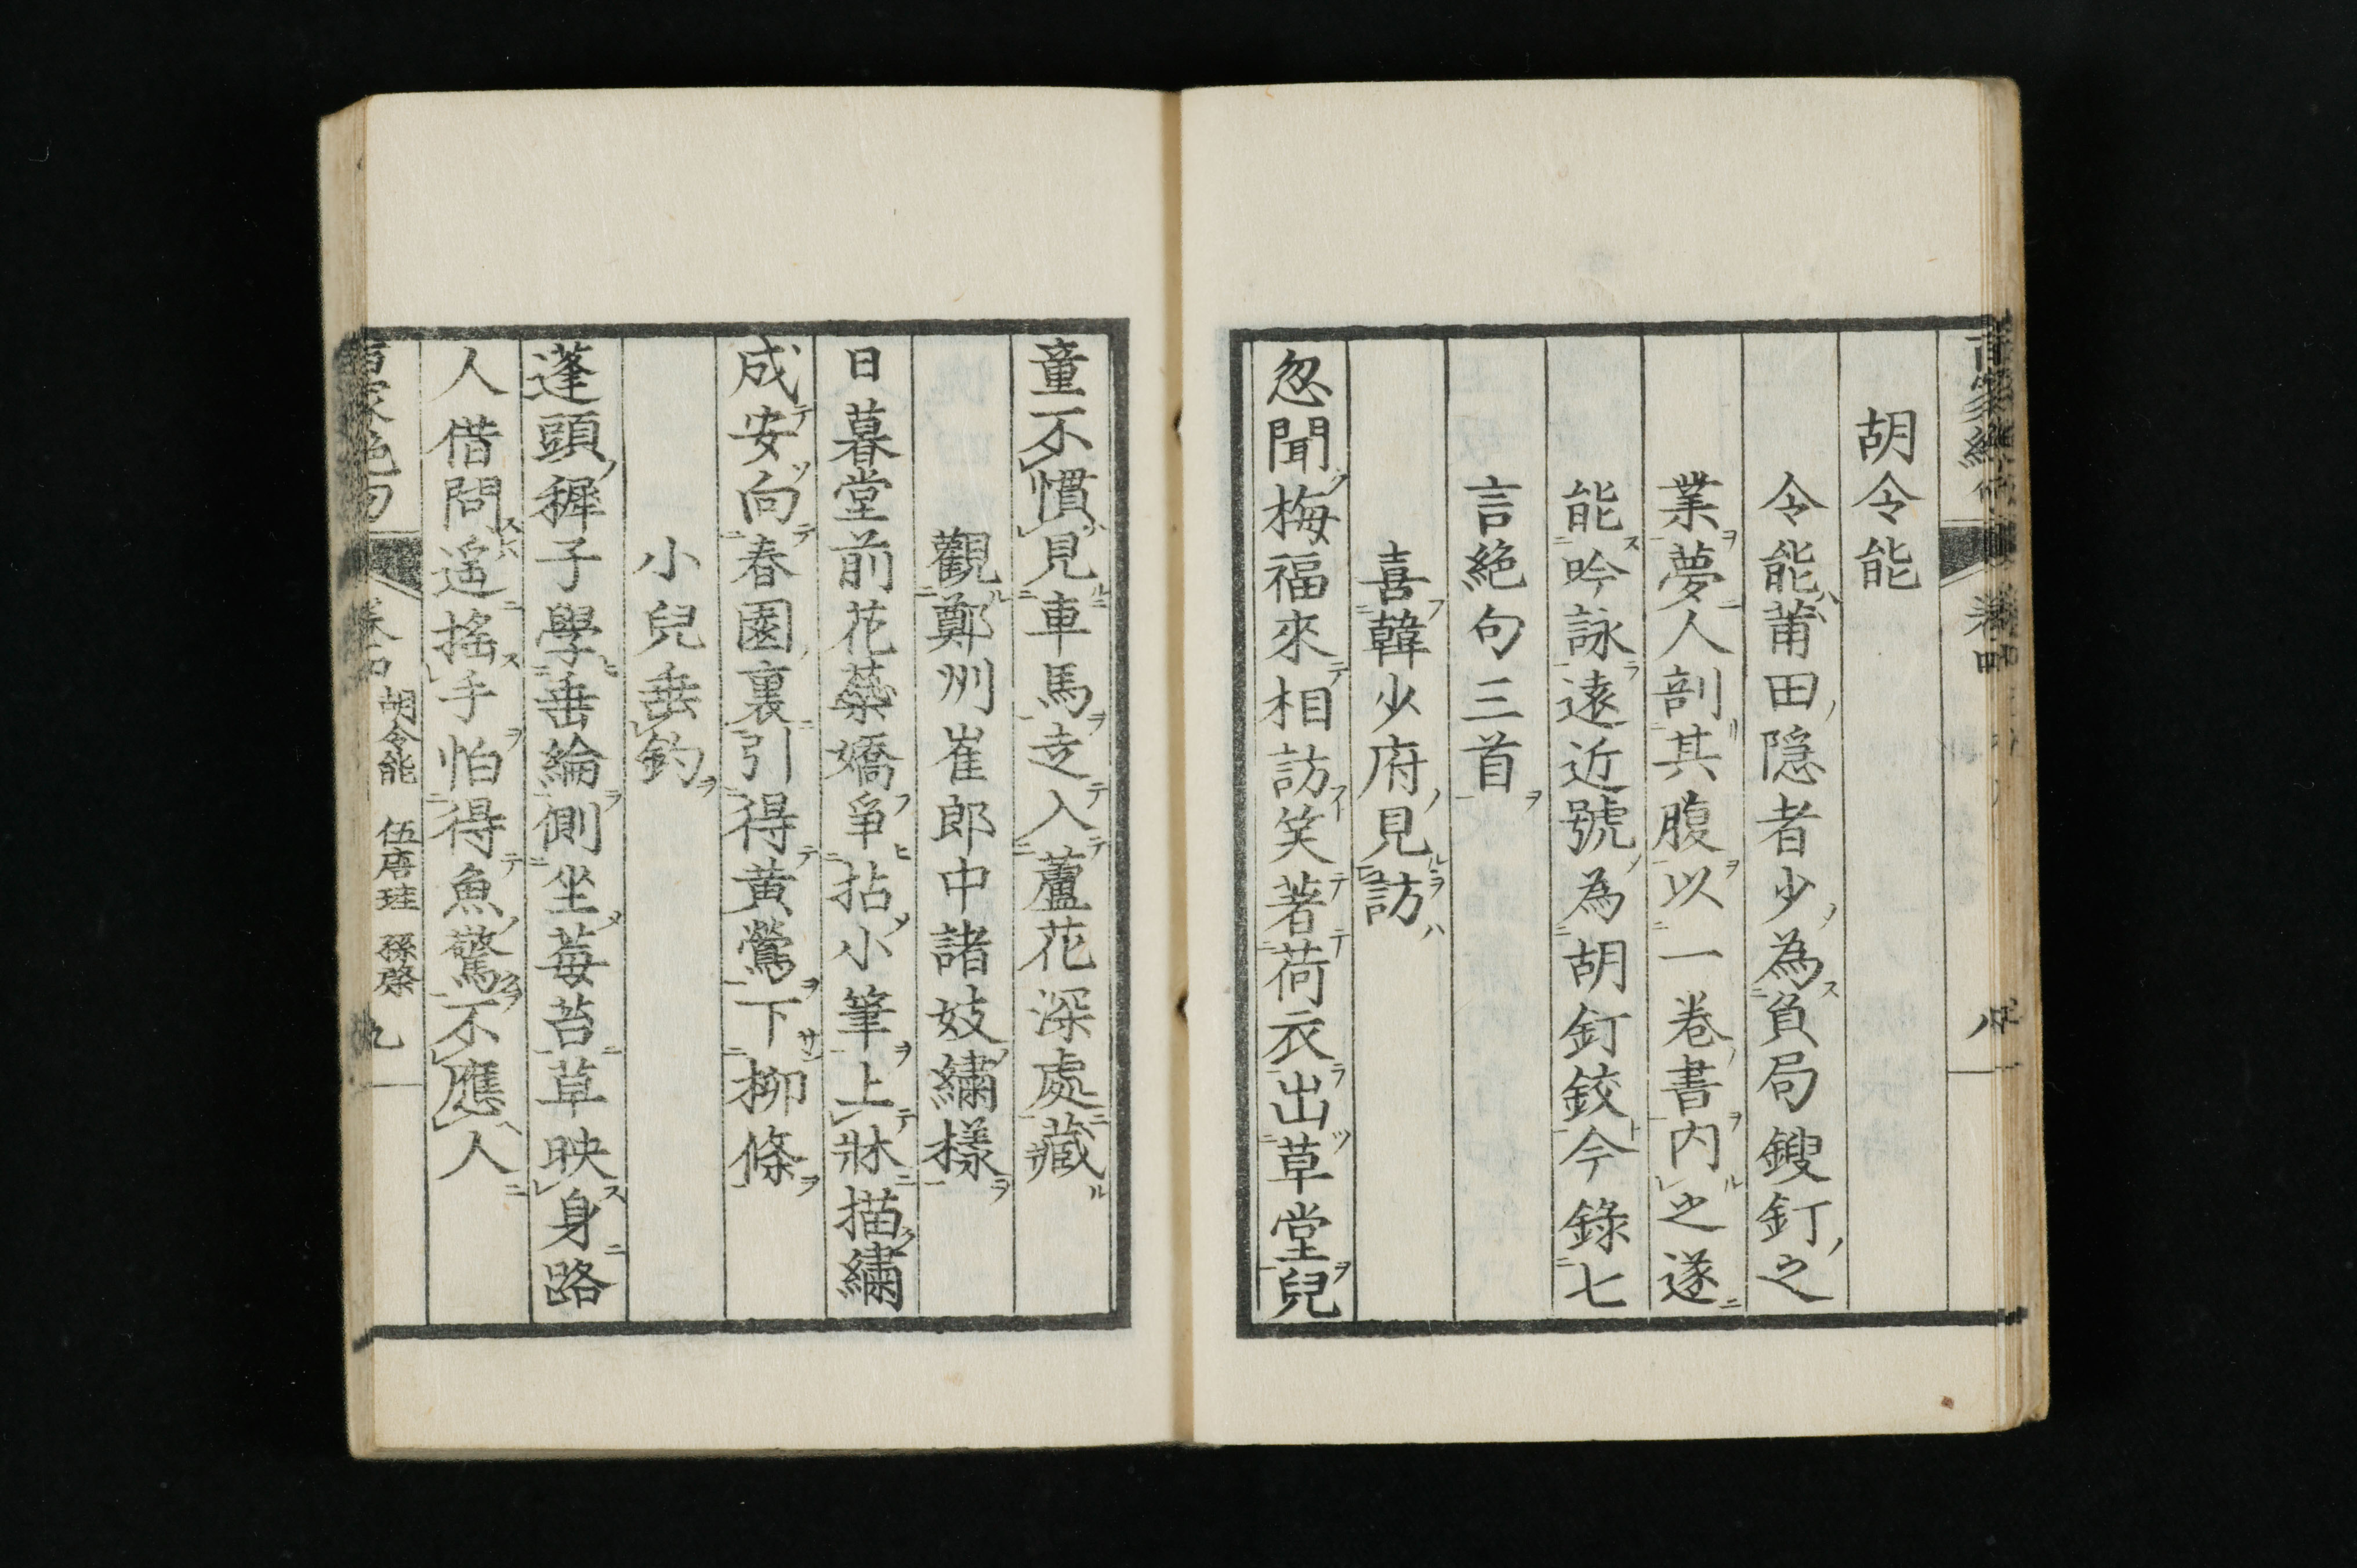 胡令能
令能莆田隠者少為負局鎪釘之
業夢人剖其腹以一巻書内之遂
能吟詠遠近號為胡釘鉸今錄七
言絶句三首
喜韓少府見訪
忽聞梅福來相訪笑著荷衣出草堂兒
童不慣見車馬走入蘆花深處藏
觀鄭州崔郎中諸妓繡樣
日暮堂前花蘂嬌爭拈小筆上牀描繡
成安向春園裏引得黄鶯下柳條
小兒垂釣
蓬頭稺子學垂綸側坐莓苔草映身路
人借問遥搖手怕得魚驚不應人
胡令能 伍唐珪 孫棨 九